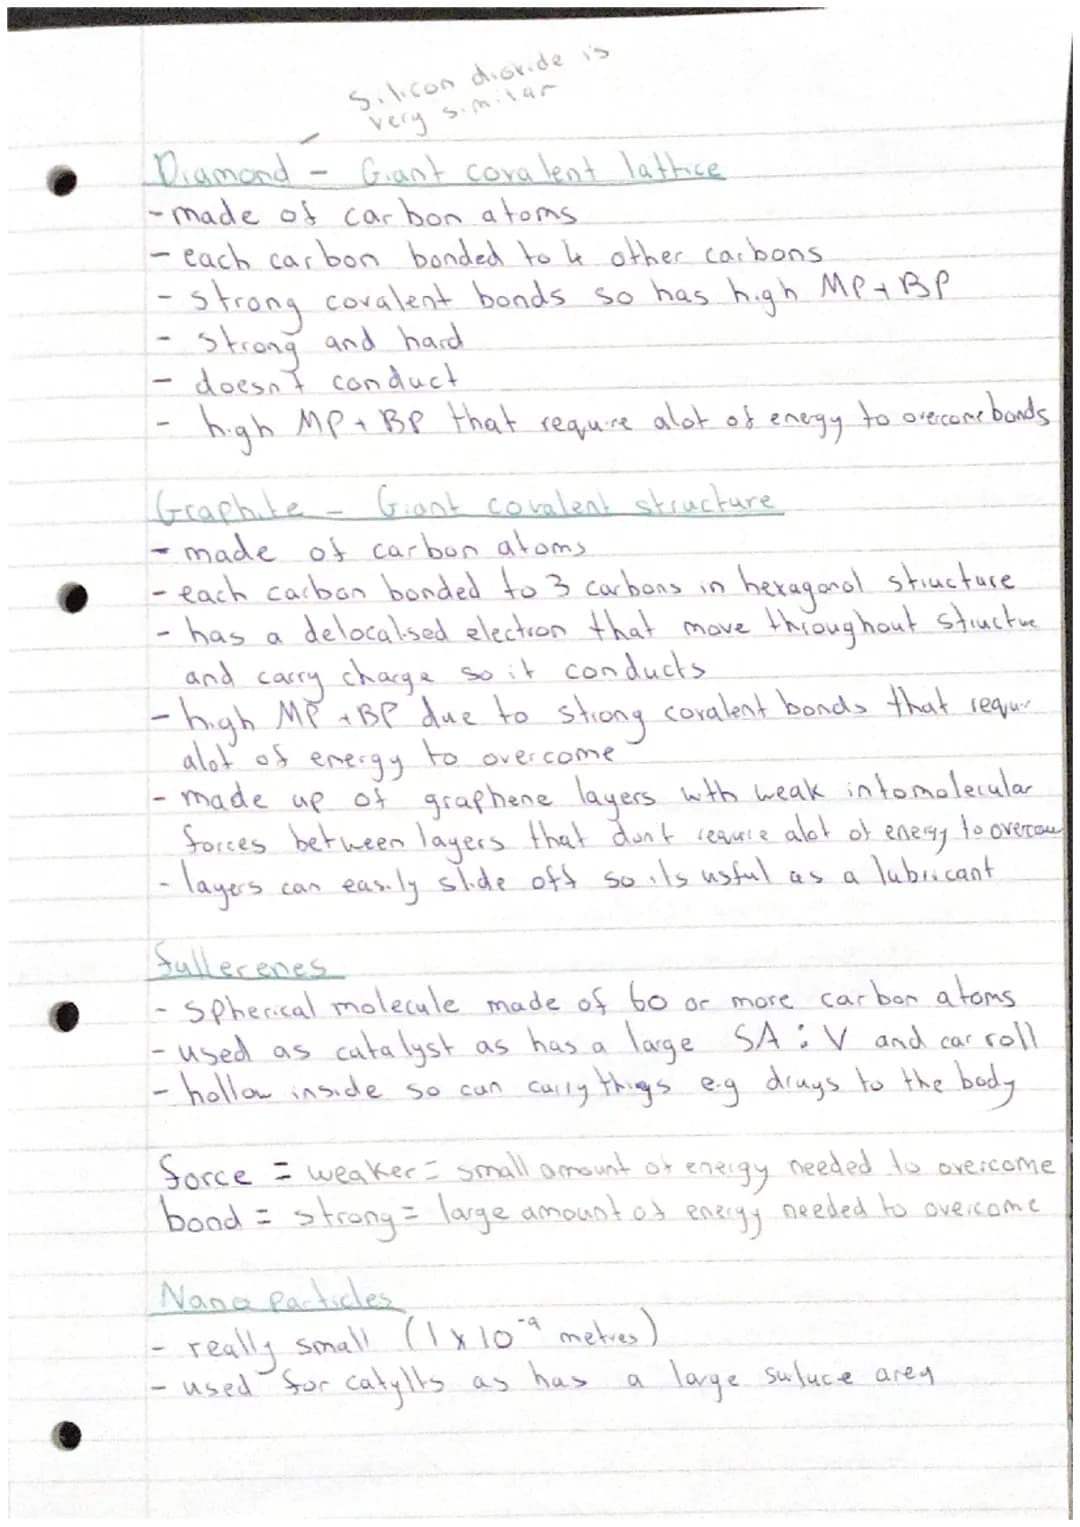 Silicon dioxide is
very similar
Diamond - Giant covalent lattice
- made of carbon atoms
- each carbon bonded to 4 other carbons
- strong covalent bonds so has high MP + BP
- strong and hard
- doesn't conduct
- high MP + BP that require alot of energy to overcome bonds
Graphite - Giant covalent structure
- made of carbon atoms
- each carbon bonded to 3 carbons in hexagonal structure
- has a delocalised electron that move throughout structue
and carry charge so it conducts
- high MP + BP due to strong covalent bonds that requir
alot of energy to overcome
- made up of graphene layers wth weak intomolecular
forces between layers that dont require alot of energy to overcom
- layers can easily slide off so its usful as a lubricant
fullerenes
- spherical molecule made of 60 or more carbon atoms
- used as catalyst as has a large SA : V and can roll
- hollow inside so can carry things e.g drugs to the body
force = weaker = small amount of energy needed to overcome
bond = strong = large amount of energy needed to overcome
Nano Particles
- really small (1 x 10⁻⁹ metres)
- used for catylts as has a large surface area